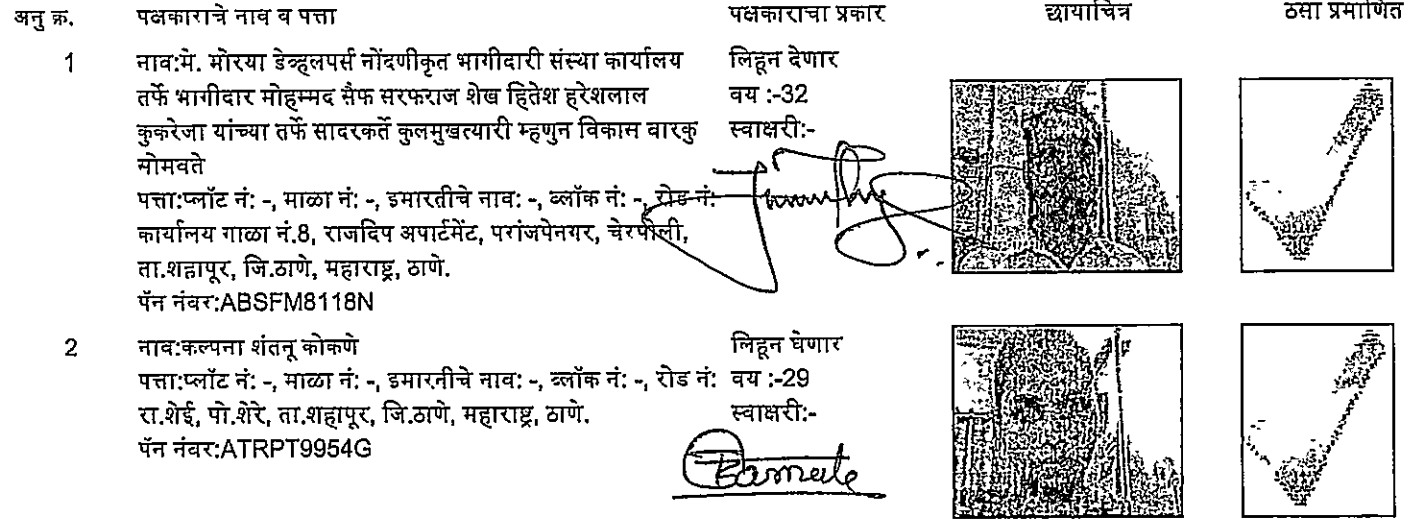 अनु क्र. पक्षकाराचे नाव व पत्ता पक्षकाराचा प्रकार छायाचित्र ठसा प्रमाणित
1 नाव:मे. मोरया डेव्हलपर्स नोंदणीकृत भागीदारी संस्था कार्यालय लिहून देणार
तर्फे भागीदार मोहम्मद सैफ सरफराज शेख हितेश हरेशलाल वय :-32
कुकरेजा यांच्या तर्फे सादरकर्ते कुलमुखत्यारी म्हणुन विकास बारकु स्वाक्षरी:-
सोमवते
पत्ता:प्लॉट नं: -, माळा नं: -, इमारतीचे नाव: -, ब्लॉक नं: -, रोड नं:
कार्यालय गाळा नं.8, राजदिप अपार्टमेंट, परांजपेनगर, चेरपोली,
ता.शहापूर, जि.ठाणे, महाराष्ट्र, ठाणे.
पॅन नंबर:ABSFM8118N
2 नाव:कल्पना शंतनू कोकणे लिहून घेणार
पत्ता:प्लॉट नं: -, माळा नं: -, इमारतीचे नाव: -, ब्लॉक नं: -, रोड नं: वय :-29
रा.शेई, पो.शेरे, ता.शहापूर, जि.ठाणे, महाराष्ट्र, ठाणे. स्वाक्षरी:-
पॅन नंबर:ATRPT9954G